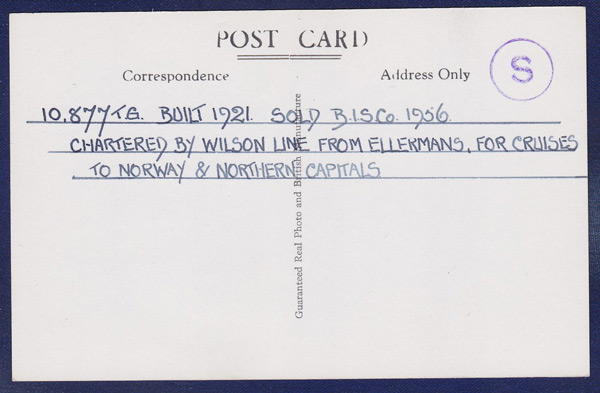 POST CARD
Correspondence
Address Only
S
10,877 T.G. BUILT 1921. SOLD B.I.S.Co. 1956.
CHARTERED BY WILSON LINE FROM ELLERMANS, FOR CRUISES
TO NORWAY & NORTHERN CAPITALS
Guaranteed Real Photo and British Manufacture